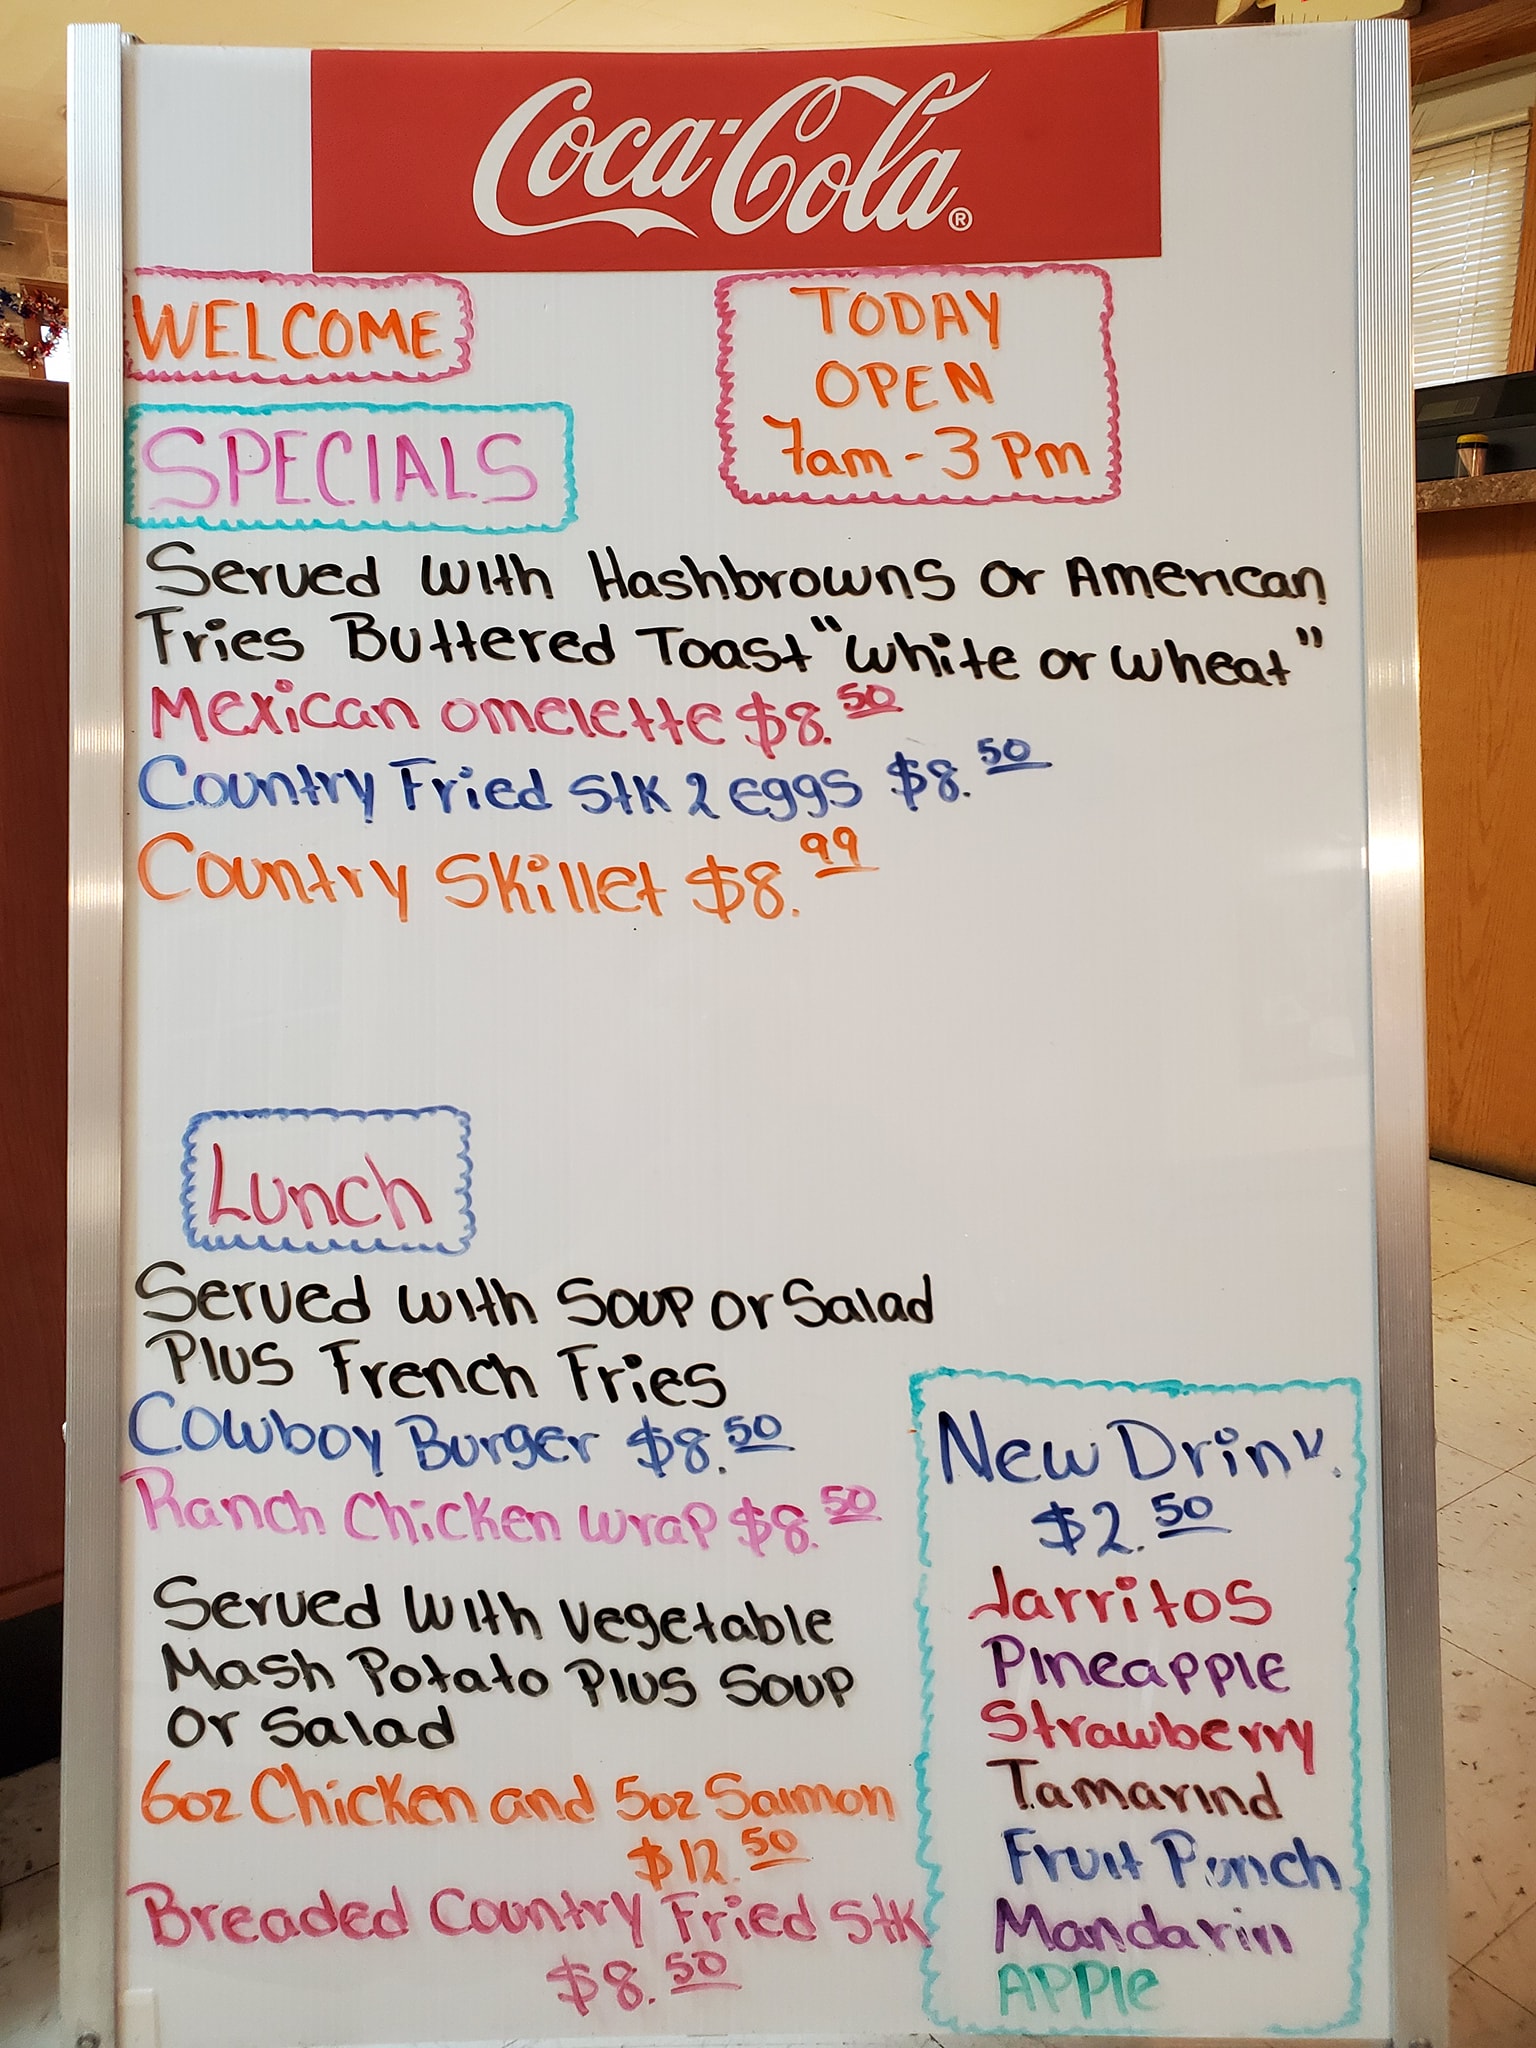 Coca-Cola®
WELCOME
TODAY
OPEN
7am - 3 Pm
SPECIALS
Served with Hashbrowns or American
Fries Buttered Toast "White or Wheat"
Mexican omelette $8.50
Country Fried Stk 2 eggs $8.50
Country Skillet $8.99
Lunch
Served with Soup or Salad
Plus French Fries
Cowboy Burger $8.50
Ranch Chicken Wrap $8.50
Served with vegetable
Mash Potato Plus Soup
or Salad
6oz Chicken and 5oz Salmon
$12.50
Breaded Country Fried Stk
$8.50
New Drink
$2.50
Jarritos
Pineapple
Strawberry
Tamarind
Fruit Punch
Mandarin
APPle